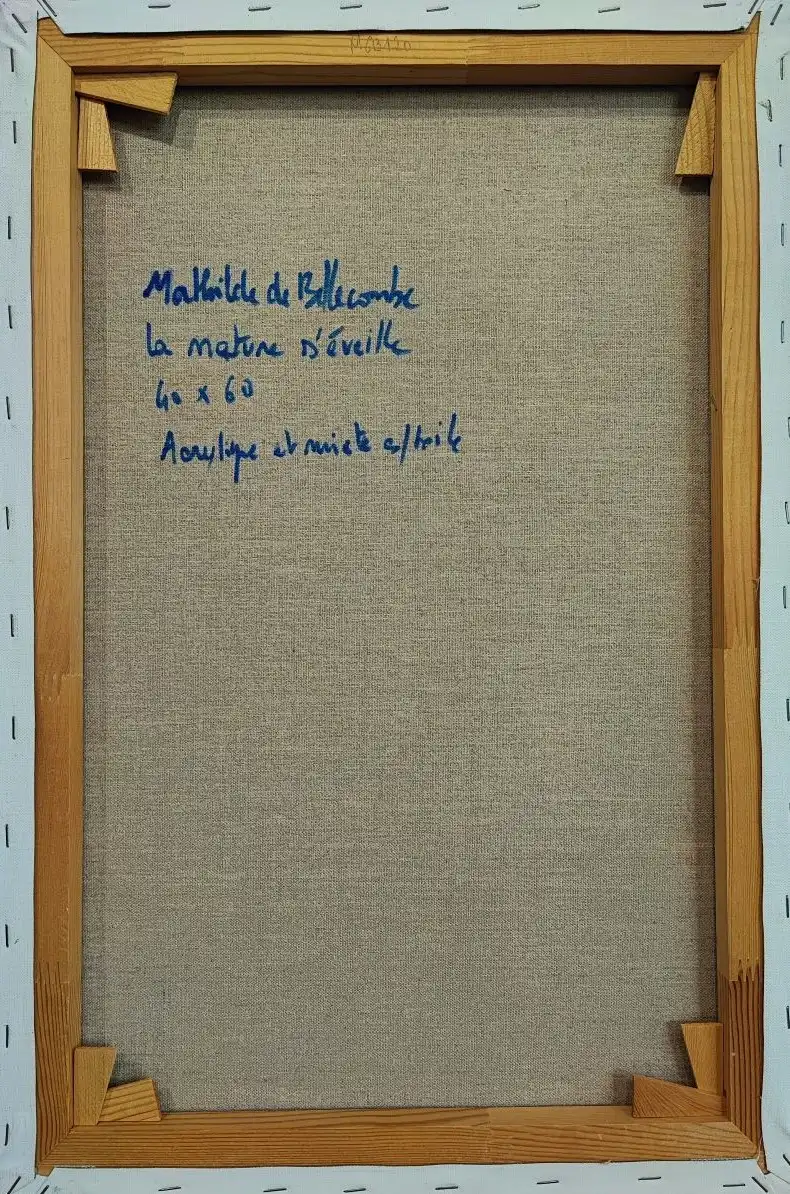 Mathilde de Bellecombe
la nature s'éveille
40 x 60
Acrylique et mixte s/toile